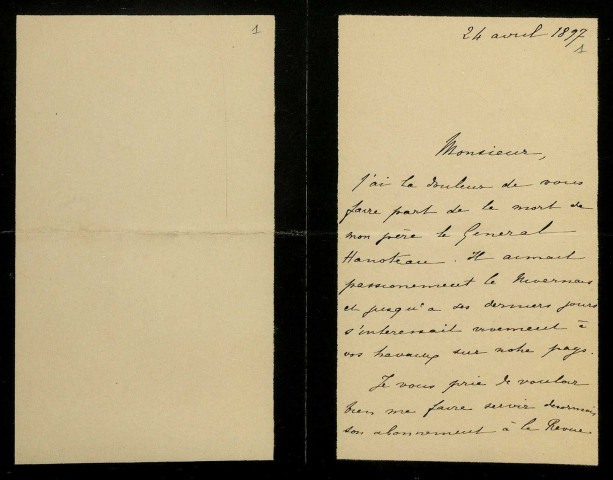 1
24 avril 1897
1
Monsieur,
J'ai la douleur de vous
faire part de la mort de
mon père le General
Hanoteau. Il aimait
passionement le Nivernais
et jusqu'a ses derniers jours
s'interessait vivement à
vos travaux sur notre pays.
Je vous prie de vouloir
bien me faire servir desormais
son abonnement à la Revue